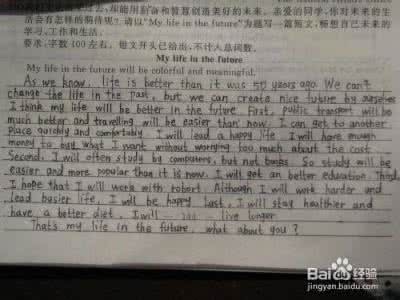 却能用勤奋和智慧创造美好的未来。亲爱的同学，你对未来的生
活会有怎样的期待呢？请以“My life in the future”为题写一篇短文，畅想自己未来的
学习、工作和生活。
要求：字数100左右，短文开头已给出，不计入总词数。
My life in the future
My life in the future will be colorful and meaningful.
As we know, life is better than it was 50 years ago. We can't
change the life in the past, but we can create nice future by ourselves
I think my life will be better in the future. First, public transport will be
much better and travelling will be easier than now. I can get to another
place quickly and comfortably. I will lead a happy life. I will have enough
money to buy what I want without worrying too much about the cost
Second, I will often study by computers, but not books. So study will be
easier and more popular than it is now. I will get an better education. Third,
I hope that I will work with robert. Although I will work harder and
lead busier life, I will be happy. Last, I will stay healthier and
have a better diet. I will live longer
That's my life in the future, what about you?
Baidu 经验
jingyan.baidu.com